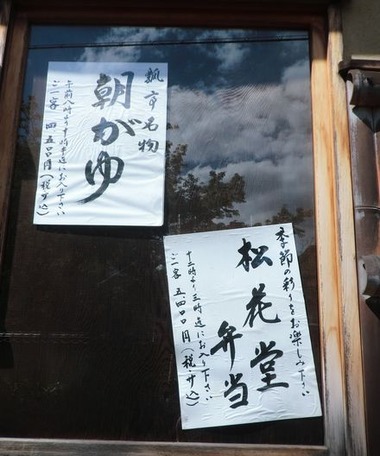 瓢亭名物
朝がゆ
午前八時より十時迄にお入り下さい
ご一客 四、五〇〇円(税・サ込)
季節の彩りをお楽しみ下さい
松花堂
弁当
十二時より三時迄にお入り下さい
ご一客 五、四〇〇円(税・サ込)